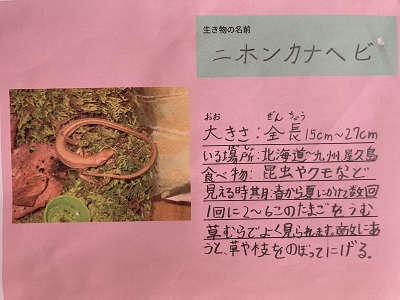 生き物の名前
ニホンカナヘビ
おお ぜん ちょう
大きさ：全長15cm～27cm
いる場所：北海道～九州、屋久島
食べ物：昆虫やクモなど
見える時期：春から夏にかけて数回
1回に2～6このたまごをうむ
草むらでよく見られます。敵にあ
うと、草や枝をのぼってにげる。